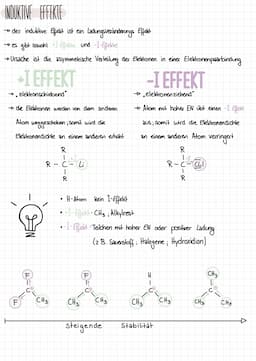 INDUKTIVE EFFEKTE
→ der induktive Effekt ist ein Ladungsverändernder Effekt
→ es gibt sowohl +I-Effekte und -I-Effekte
→ Ursache ist die asymmetrische Verteilung der Elektronen in einer Elektronenpaarbindung
+I EFFEKT
→ "elektronenschiebend"
→ die Elektronen werden von dem anderen
Atom weggeschoben, somit wird die
Elektronendichte an einem anderen erhöht
R
R - C - Li
R
-I EFFEKT
→ "elektronenziehend"
→ Atom mit hoher EN übt einen -I-Effekt
aus, somit wird die Elektronendichte
an einem anderen Atom verringert
R
R - C - Cl
R
• H-Atom kein I-Effekt
• +I-Effekt CH₃, Alkylrest
• -I-Effekt Teilchen mit hoher EN oder positiver Ladung
(z.B. Sauerstoff, Halogene, Hydroxidion)
F
C⁺
F CH₃
F
C⁺
CH₃ CH₃
H
C⁺
CH₃ CH₃
CH₃
C⁺
CH₃ CH₃
steigende Stabilität